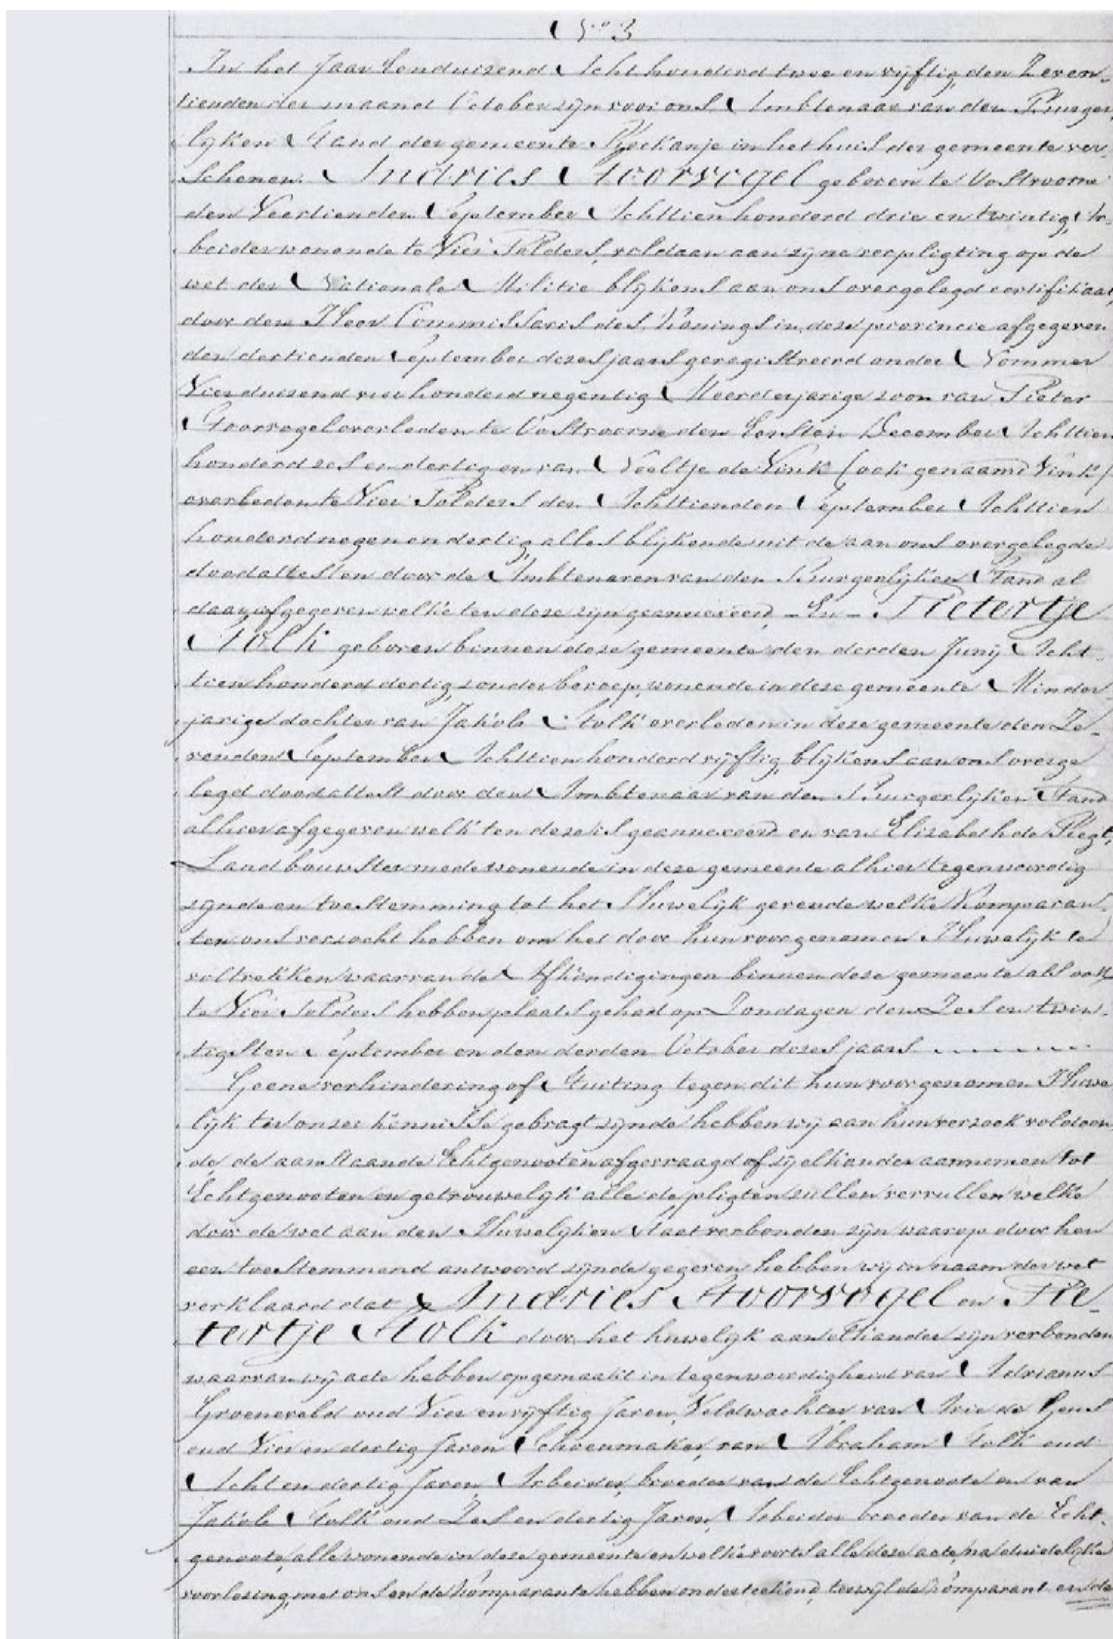 No 3
In het Jaar Eenduizend Acht honderd twee en vijftig, den Zeven-
tienden der maand October zijn voor ons Ambtenaar van den Burger
lijken Stand der gemeente Rockanje in het huis der gemeente ver-
schenen. Andries Stoorvogel geboren te Oostvoorne
den Veertienden September Achttien honderd drie en twintig, Ar-
beider wonende te Vier Polders, voldaan aan zijne verpligting op de
wet der Nationale Militie blijkens aan ons overgelegd certifikaat
door den Heer Commissaris des Konings in deze provincie afgegeven
den dertienden September dezes jaars geregistreerd onder Nommer
Vierduizend vier honderd negentig Meerderjarige zoon van Pieter
Stoorvogel overleden te Oostvoorne den Eersten December Achttien
honderd zes en dertig en van Neeltje de Vink (ook genaamd Vink)
overleden te Vier Polders den Achttienden September Achttien
honderd negen en dertig, alles blijkende uit de aan ons overgelegde
doodattesten door de Ambtenaren van den Burgerlijken Stand al
daar afgegeven welke ten deze zijn geannexeerd - En - Pietertje
Stolk geboren binnen deze gemeente den derden Junij Acht-
tien honderd dertig, zonder beroep, wonende in deze gemeente Minder-
jarige dochter van Jakob Stolk overleden in deze gemeente den Ze-
venden September Achttien honderd vijftig, blijkens aan ons overge
legd doodattest door den Ambtenaar van den Burgerlijken Stand
alhier afgegeven welk ten deze is geannexeerd en van Elizabeth de Regt,
Landbouwster mede wonende in deze gemeente alhier tegenwoordig
zijnde en toestemming tot het Huwelijk gevende welke Komparan-
ten ons verzocht hebben om het door hun voorgenomen Huwelijk te
voltrekken waarvan de Afkondigingen binnen deze gemeente als ook
te Vier Polders hebben plaats gehad op Zondagen den Zes en twin-
tigsten September en den derden October dezes jaars
Geene verhindering of Stuiting tegen dit hun voorgenomen Huwe
lijk ter onzer kennisse gebragt zijnde hebben wij aan hun verzoek voldoen
de, de aanstaande Echtgenooten afgevraagd of zij elkander aannemen tot
Echtgenooten en getrouwelijk alle de pligten zullen vervullen welke
door de wet aan den Huwelijken Staat verbonden zijn waarop door hen
een toestemmend antwoord zijnde gegeven hebben wij in naam der wet
verklaard dat Andries Stoorvogel en Pie-
tertje Stolk door het huwelijk aan elkander zijn verbonden
waarvan wij acte hebben opgemaakt in tegenwoordigheid van Adrianus
Groeneveld oud Vier en vijftig Jaren, Veldwachter, van Arie de Geus
oud Vier en dertig Jaren Schoenmaker, van Abraham Stolk oud
Acht en dertig Jaren, Arbeider, broeder van de Echtgenoote en van
Jakob Stolk oud Zes en dertig Jaren, Arbeider broeder van de Echt-
genoote, alle wonende in deze gemeente en welke voorts alle deze acte, na duidelijke
voorlezing, met ons en de komparante hebben onderteekend, terwijl de komparant en de